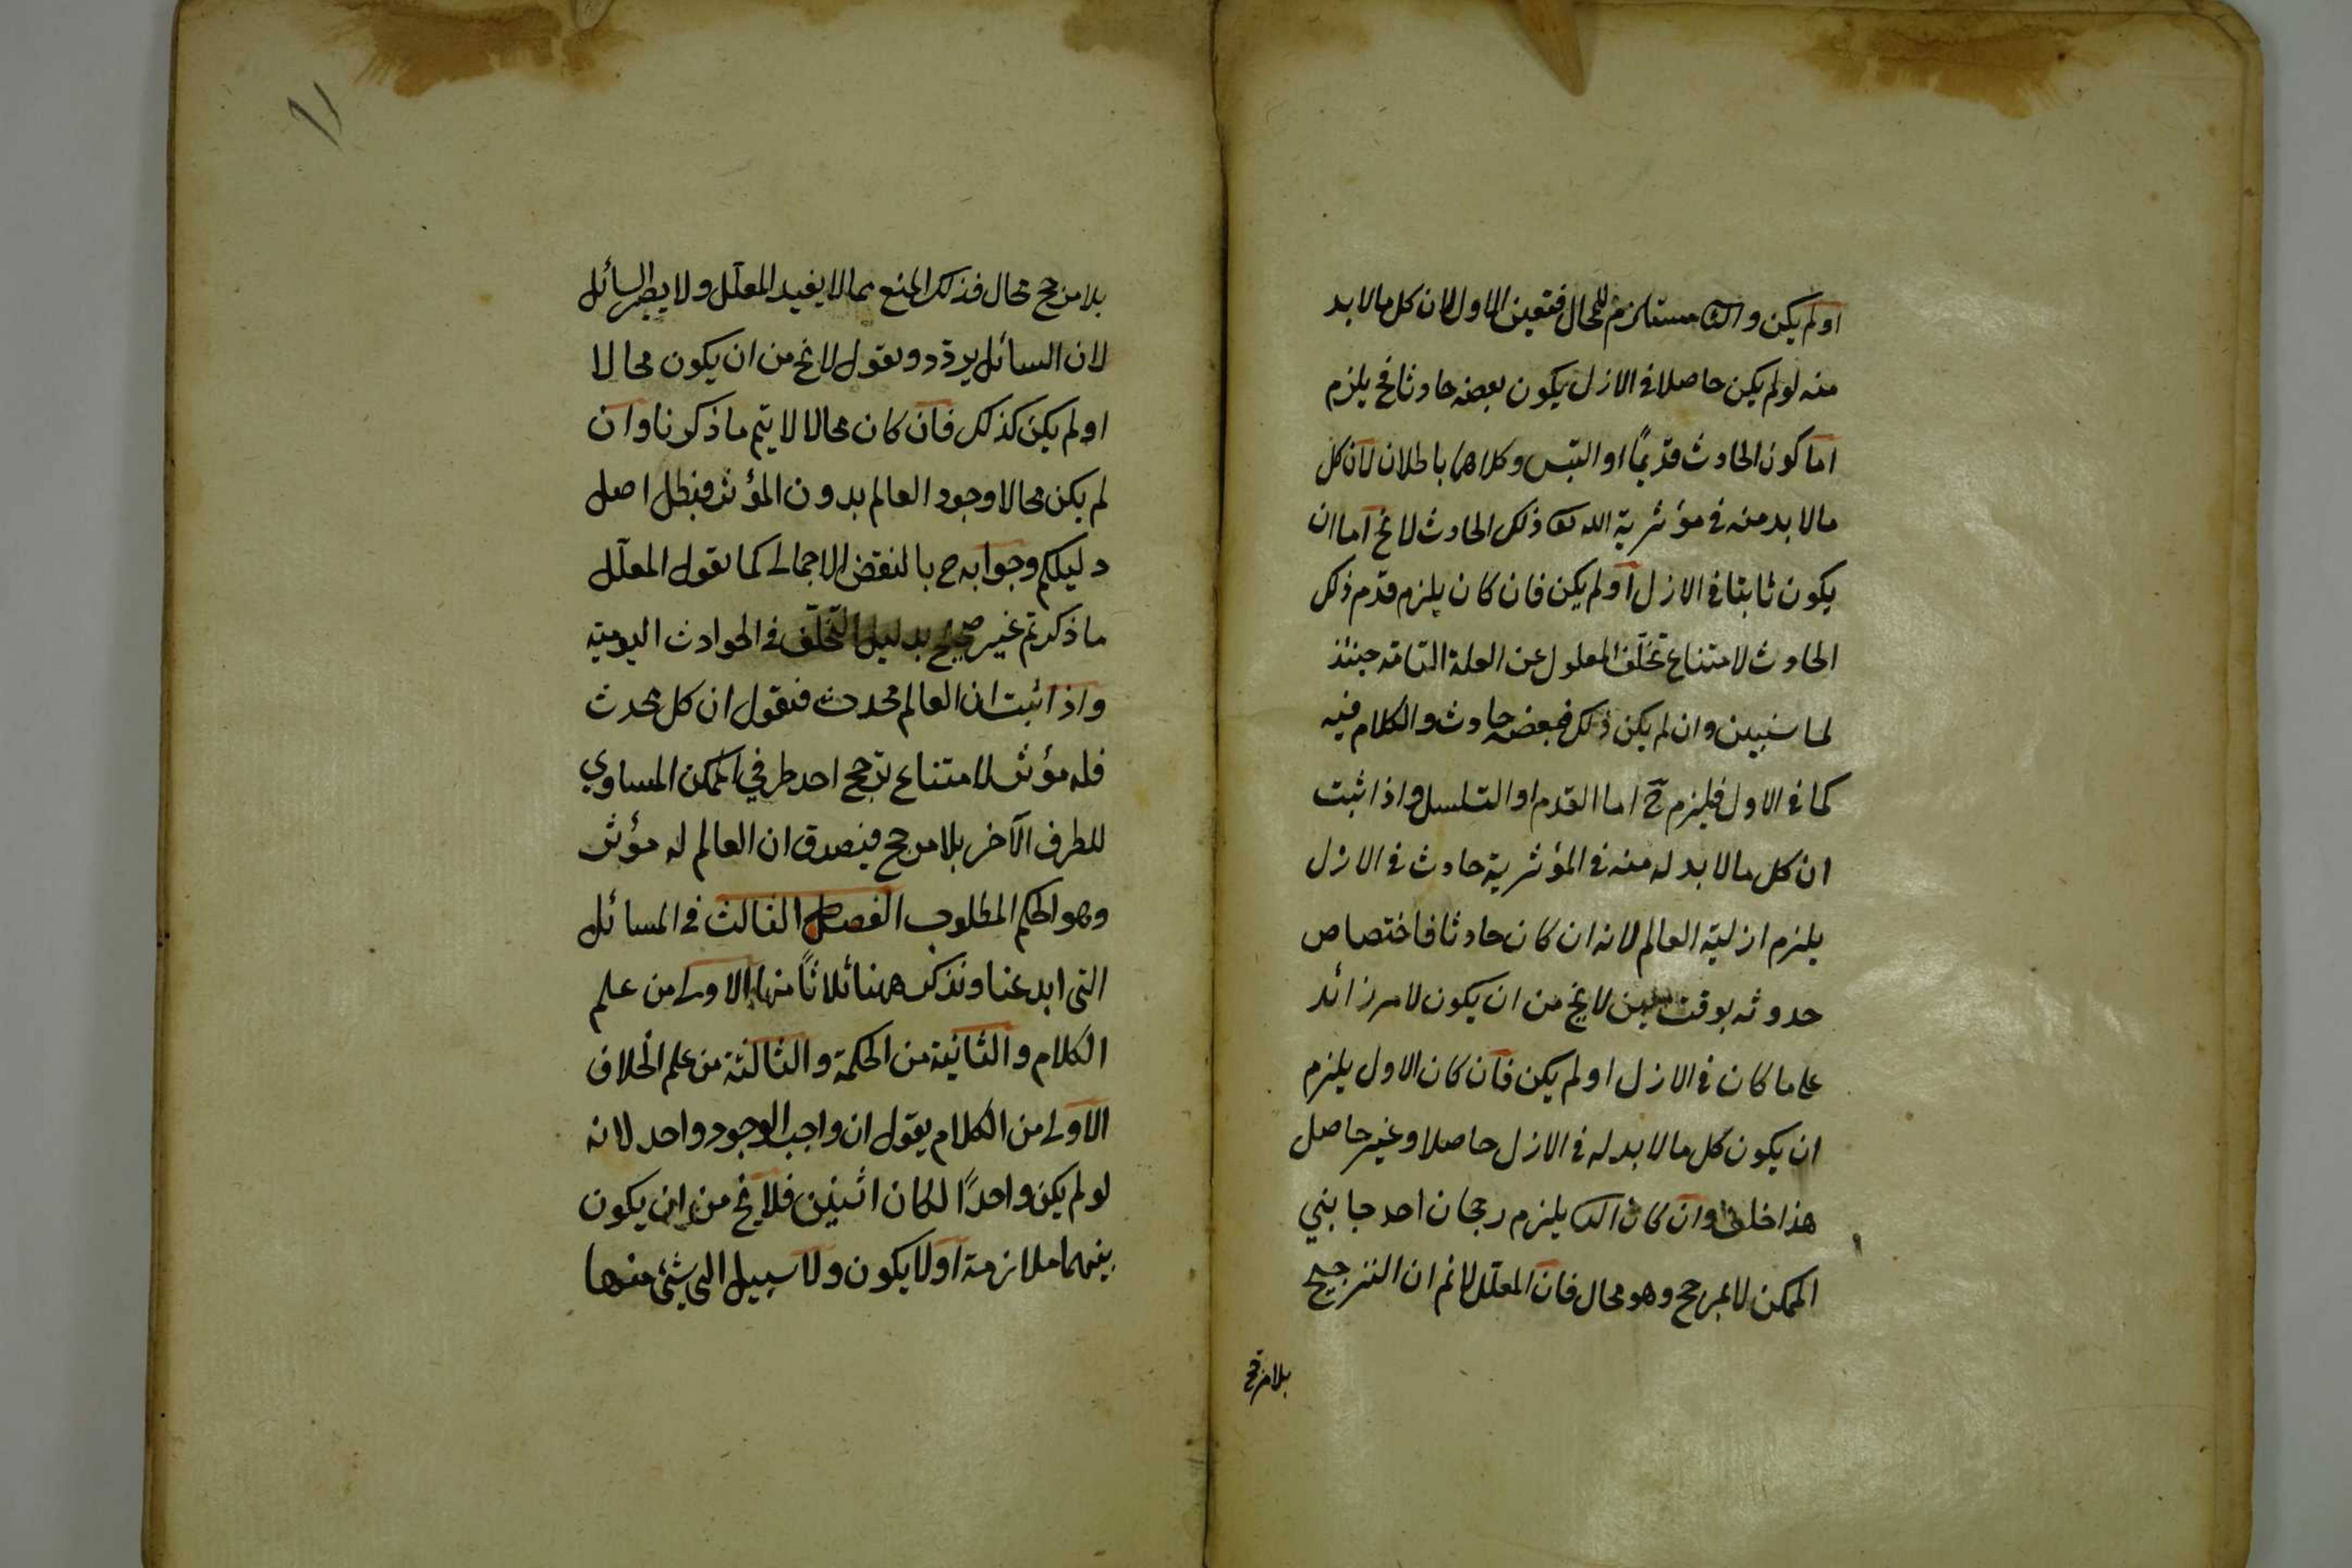 او لم يكن والثا مستلزم للمحال فتعين الاول لان كل مالا بد
منه لو لم يكن حاصلا فى الازل يكون بعضه حادثا فح يلزم
اما كون الحادث قديمًا او التس وكلاهما باطلان لان كل
مالا بد منه فى مؤثرية الله تعا ذلك الحادث لا يخ اما ان
يكون ثابتا فى الازل او لم يكن فان كان يلزم قدم ذلك
الحادث لامتناع تخلّف المعلول عن العلة التامة حينئذ
لما سنبين وان لم يكن ذلك فبعضه حادث والكلام فيه
كما فى الاول فيلزم ح اما القدم او التسلسل واذا ثبت
ان كل مالا بد له منه فى المؤثرية حادث فى الازل
يلزم ازلية العالم لانه ان كان حادثا فاختصاص
حدوثه بوقت معين لا يخ من ان يكون لامر زائد
على ما كان فى الازل او لم يكن فان كان الاول يلزم
ان يكون كل مالا بد له فى الازل حاصلا وغير حاصل
هذا خلف وان كان الثا يلزم رجحان احد جانبي
الممكن لا لمرجح وهو محال فان المعلّل لا نم ان الترجيح
بلا مرجح
١١
بلا مرجح محال فذلك المنع مما لا يفيد المعلّل ولا يضر السائل
لان السائل يردّد ويقول لا يخ من ان يكون محالا
او لم يكن كذلك فان كان محالا لا يتم ما ذكرنا وان
لم يكن محالا وجود العالم بدون المؤثر فبطل اصل
دليلكم وجوابه ح بالنقض الاجمالى كما يقول المعلّل
ما ذكرتم غير صحيح بدليل التخلّف فى الحوادث اليومية
واذا ثبت ان العالم محدث فنقول ان كل محدث
فله مؤثر لامتناع ترجح احد طرفي الممكن المساوي
للطرف الآخر بلا مرجح فيصدق ان العالم له مؤثر
وهو الحكم المطلوب الفصل الثالث فى المسائل
التى ابدعنا ونذكر ههنا ثلاثًا منها الاولى من علم
الكلام والثانية من الحكمة والثالثة من علم الخلاف
الاولى من الكلام يقول ان واجب الوجود واحد لانه
لو لم يكن واحدًا لكان اثنين فلا يخ من ان يكون
بينهما ملازمة او لا يكون ولا سبيل الى شئ منها